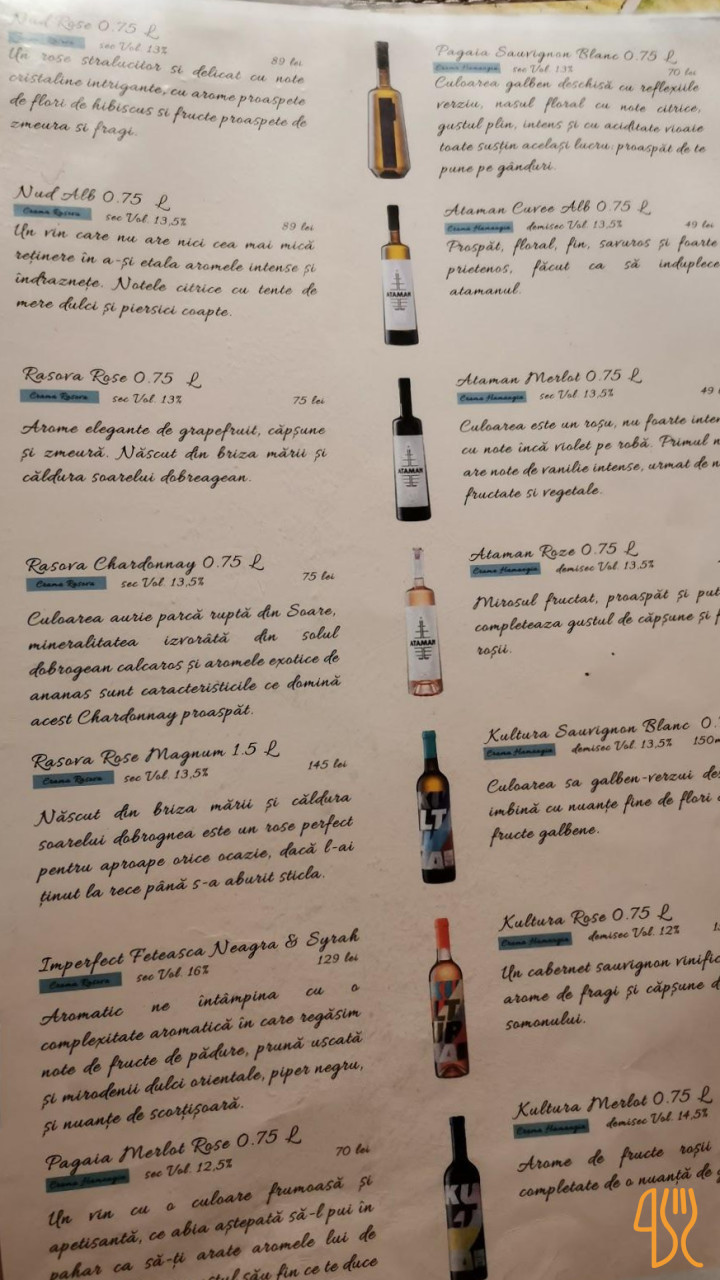 Nud Rose 0.75 L
Crama Rasova sec Vol. 13% 89 lei
Un rose stralucitor si delicat cu note
cristaline intrigante, cu arome proaspete
de flori de hibiscus si fructe proaspete de
zmeura si fragi.
Nud Alb 0.75 L
Crama Rasova sec Vol. 13,5% 89 lei
Un vin care nu are nici cea mai mică
reținere în a-și etala aromele intense și
îndraznețe. Notele citrice cu tente de
mere dulci și piersici coapte.
Rasova Rose 0.75 L
Crama Rasova sec Vol. 13% 75 lei
Arome elegante de grapefruit, căpșune
și zmeură. Născut din briza mării și
căldura soarelui dobreagean.
Rasova Chardonnay 0.75 L
Crama Rasova sec Vol. 13,5% 75 lei
Culoarea aurie parcă ruptă din Soare,
mineralitatea izvorâtă din solul
dobrogean calcaros și aromele exotice de
ananas sunt caracteristicile ce domină
acest Chardonnay proaspăt.
Rasova Rose Magnum 1.5 L
Crama Rasova sec Vol. 13,5% 145 lei
Născut din briza mării și căldura
soarelui dobrognea este un rose perfect
pentru aproape orice ocazie, dacă l-ai
ținut la rece până s-a aburit sticla.
Imperfect Feteasca Neagra & Syrah
Crama Rasova sec Vol. 16% 129 lei
Aromatic ne întâmpina cu o
complexitate aromatică în care regăsim
note de fructe de pădure, prună uscată
și mirodenii dulci orientale, piper negru,
și nuanțe de scorțișoară.
Pagaia Merlot Rose 0.75 L
Crama Hamangia sec Vol. 12,5% 70 lei
Un vin cu o culoare frumoasă și
apetisantă, ce abia aștepată să-l pui în
pahar ca să-ți arate aromele lui de
său fin ce te duce
Pagaia Sauvignon Blanc 0.75 L
Crama Hamangia sec Vol. 13% 70 lei
Culoarea galben deschisă cu reflexiile
verziu, nasul floral cu note citrice,
gustul plin, intens și cu aciditate vioaie
toate susțin același lucru: proaspăt de te
pune pe gânduri.
Ataman Cuvee Alb 0.75 L
Crama Hamangia demisec Vol. 13,5% 49 lei
Prospăt, floral, fin, savuros și foarte
prietenos, făcut ca să induplece
atamanul.
Ataman Merlot 0.75 L
Crama Hamangia sec Vol. 13,5% 49
Culoarea este un roșu, nu foarte
cu note încă violet pe robă. Primul
are note de vanilie intense, urmat de
fructate si vegetale.
Ataman Roze 0.75 L
Crama Hamangia demisec Vol. 13,5%
Mirosul fructat, proaspăt și
completeaza gustul de căpșune și
roșii.
Kultura Sauvignon Blanc
Crama Hamangia demisec Vol. 13,5%
Culoarea sa galben-verzui
imbină cu nuanțe fine de flori
fructe galbene.
Kultura Rose 0.75 L
Crama Hamangia demisec Vol. 12%
Un cabernet sauvignon
arome de fragi și căpșune
somonului.
Kultura Merlot 0.75 L
Crama Hamangia demisec Vol. 14,5%
Arome de fructe roșii
completate de o nuanță de
ATAMAN
ATAMAN
ATAMAN
KULTURA
KULTURA
KULT